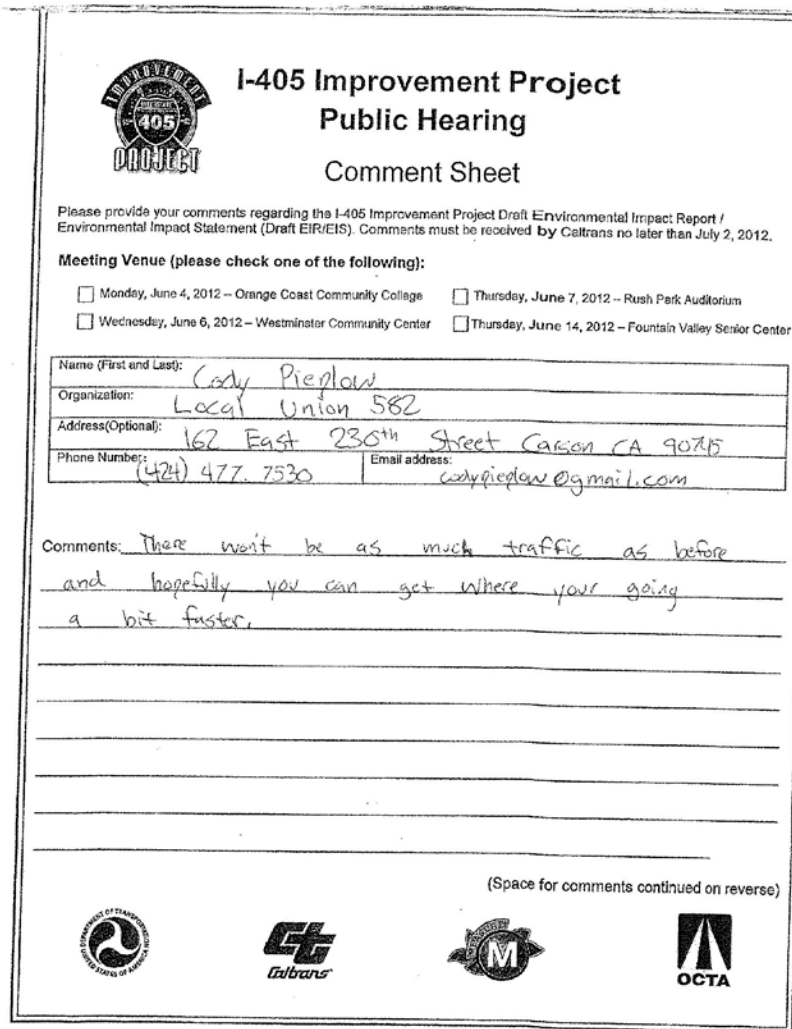 IMPROVEMENT
405
PROJECT
I-405 Improvement Project
Public Hearing
Comment Sheet
Please provide your comments regarding the I-405 Improvement Project Draft Environmental Impact Report /
Environmental Impact Statement (Draft EIR/EIS). Comments must be received by Caltrans no later than July 2, 2012.
Meeting Venue (please check one of the following):
Monday, June 4, 2012 – Orange Coast Community College
Thursday, June 7, 2012 – Rush Park Auditorium
Wednesday, June 6, 2012 – Westminster Community Center
Thursday, June 14, 2012 – Fountain Valley Senior Center
Name (First and Last): Cody Pieplow
Organization: Local Union 582
Address(Optional): 162 East 230th Street Carson CA 90745
Phone Number: (424) 477. 7530
Email address: codypieplow@gmail.com
Comments: There won't be as much traffic as before
and hopefully you can get where your going
a bit faster.
(Space for comments continued on reverse)
DEPARTMENT OF TRANSPORTATION
UNITED STATES OF AMERICA
Ct
Caltrans
MEASURE
M
OCTA